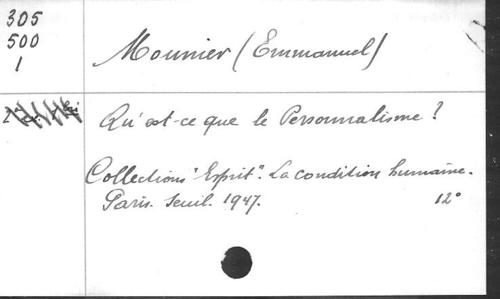 305
500
1
Mounier (Emmanuel)
Qu'est-ce que le Personnalisme?
Collections "Esprit". La condition humaine.
Paris. Seuil. 1947. 12°